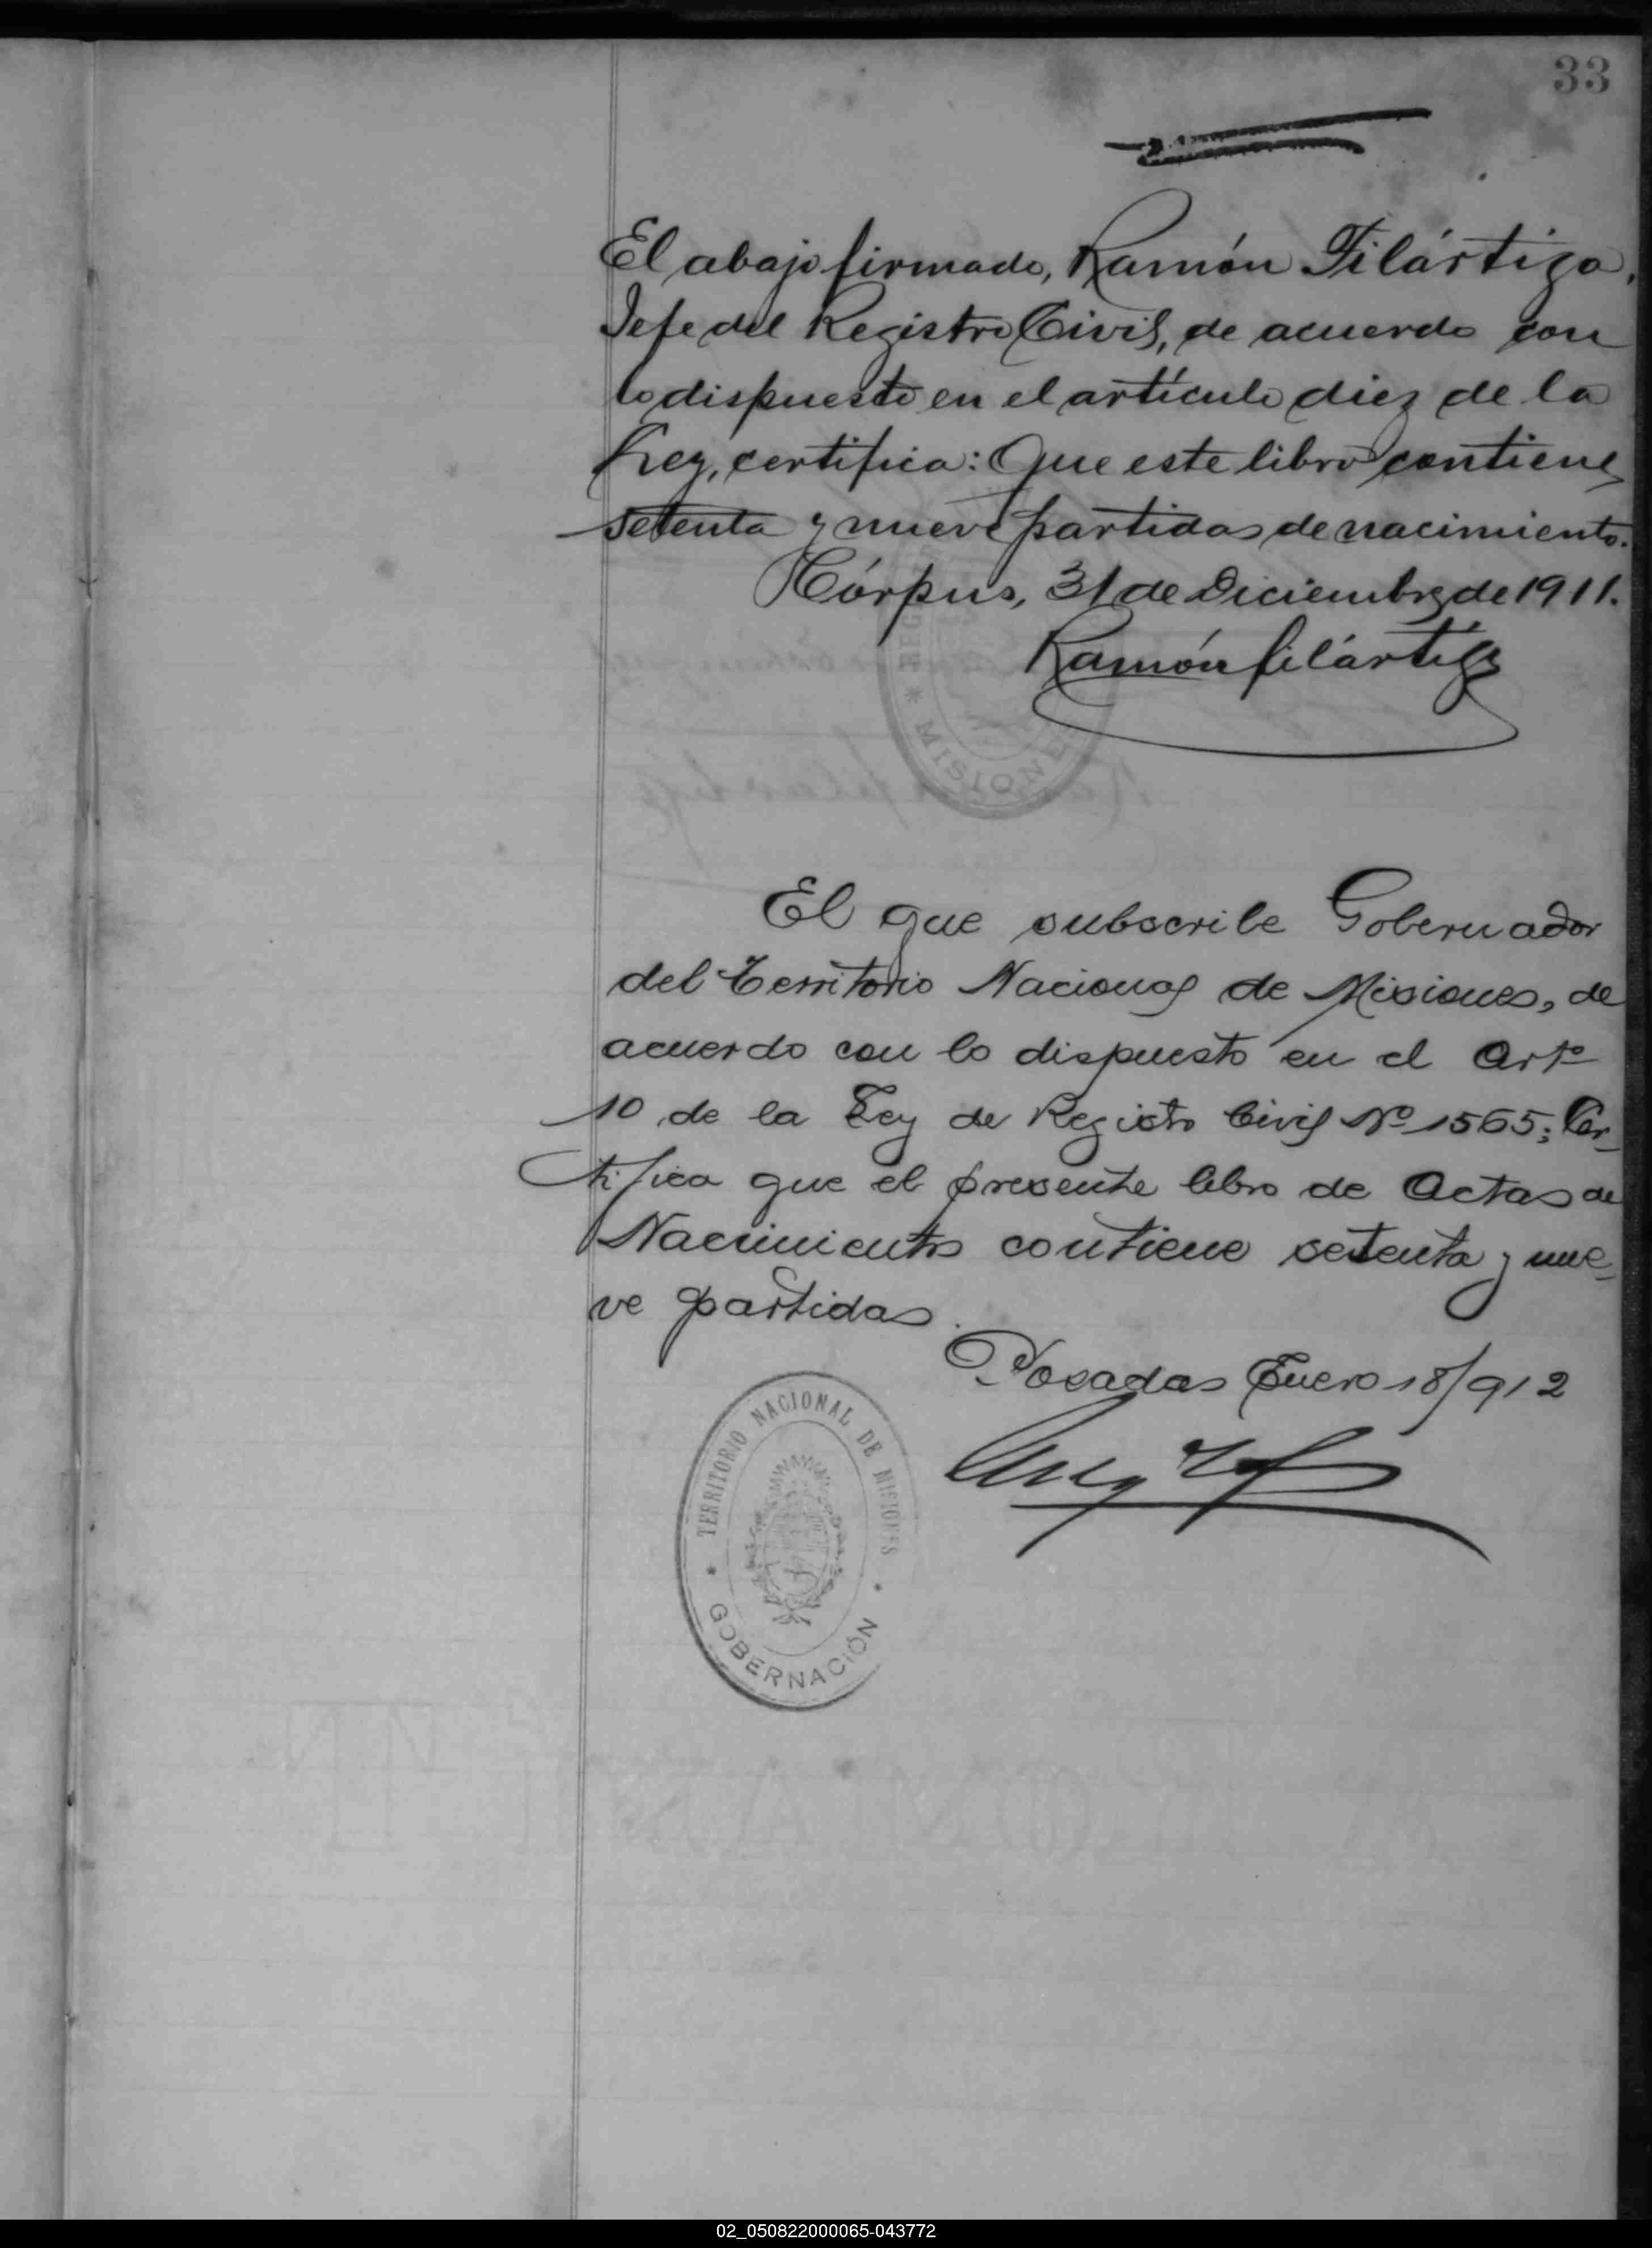 33
El abajo firmado, Ramón Filártiga,
Jefe del Registro Civil, de acuerdo con
lo dispuesto en el artículo diez de la
Ley, certifica: Que este libro contiene
setenta y nueve partidas de nacimiento.
Córpus, 31 de Diciembre de 1911.
Ramón filártiga
MISIONES
El que subscribe Gobernador
del Territorio Nacional de Misiones, de
acuerdo con lo dispuesto en el Artº
10 de la Ley de Registo Civil Nº 1565; Cer-
tifica que el presente libro de Actas de
Nacimientos contiene setenta y nue-
ve partidas.
Posadas Enero 18/912
TERRITORIO NACIONAL DE MISIONES
GOBERNACIÓN
02_050822000065-043772